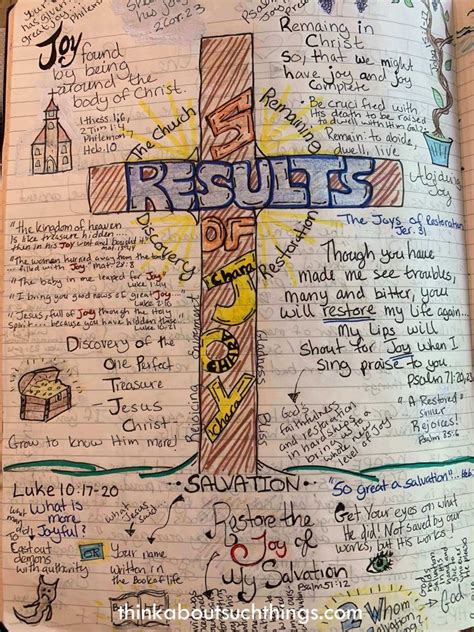 has given
great joy
has joy
2 Cor. 23
Joy found
by being
around the
body of Christ.
1 Thess. 1:6,
2 Tim 1:4
Philemon
Heb. 10
Remaining in
Christ
so, that we might
have joy and joy
complete
• Be crucified with
His death to be raised
to dwell with Him Gal 2
Remain: to abide,
dwell, live
Abiding
Joy
The Church
Remaining
5
RESULTS
OF
JOY
Chara
Chara
Discovery
Restoration
"The kingdom of heaven
is like treasure hidden...
then in his Joy went and
"The women hurried away from the tomb
...filled with Joy" Mat. 28:8
"The baby in me leaped for Joy"
Luke 1:44
"I bring you good news of great Joy."
Luke 2:10
"Jesus, full of Joy through the Holy
Spirit... because you have hidden these."
Luke 10:21
Discovery of
the
One Perfect
Treasure
Jesus
Christ
Grow to know Him more!
The Joys of Restoration
Jer. 31
Though you have
made me see troubles,
many and bitter, you
will restore my life again...
My Lips will
shout for Joy when I
sing praise to you...
Psalm 71:20, 23
"A Restored
sinner
Rejoices!
Psalm 35:6
God's
faithfulness
and restoration
in hardships
bring us to a
whole new
level of
Joy
Rejoicing
Gladness
Bliss
•SALVATION•
Luke 10:17-20
What is
more
Joyful?
Cast out
demons
with authority
OR
Your name
written in
the Book of life
what Jesus
said:
Restore the
Joy of
My Salvation
Psalm 51:12
"So great a salvation"
Get Your eyes on what
He did! Not saved by our
works, but His works!
God
Whom
thinkaboutsuchthings.com